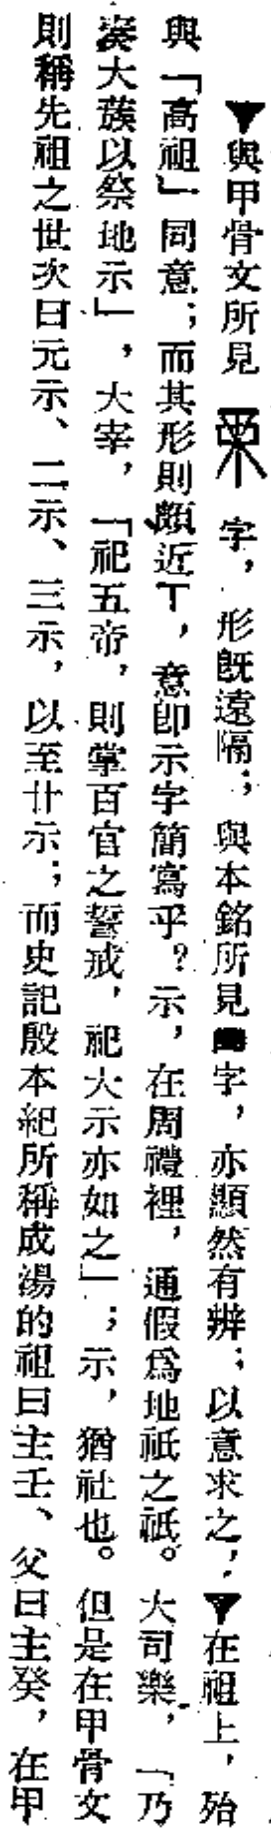 ▼與甲骨文所見 字，形旣遠隔；與本銘所見 字，亦顯然有辨；以意求之，▼在祖上，殆
與「高祖」同意；而其形則頗近丅，意卽示字簡寫乎？示，在周禮裡，通假爲地祇之祇。大司樂，「乃
奏大蔟以祭地示」，大宰，「祀五帝，則掌百官之誓戒，祀大示亦如之」；示，猶社也。但是在甲骨文
則稱先祖之世次曰元示、二示、三示，以至廿示；而史記殷本紀所稱成湯的祖曰主壬、父曰主癸，在甲